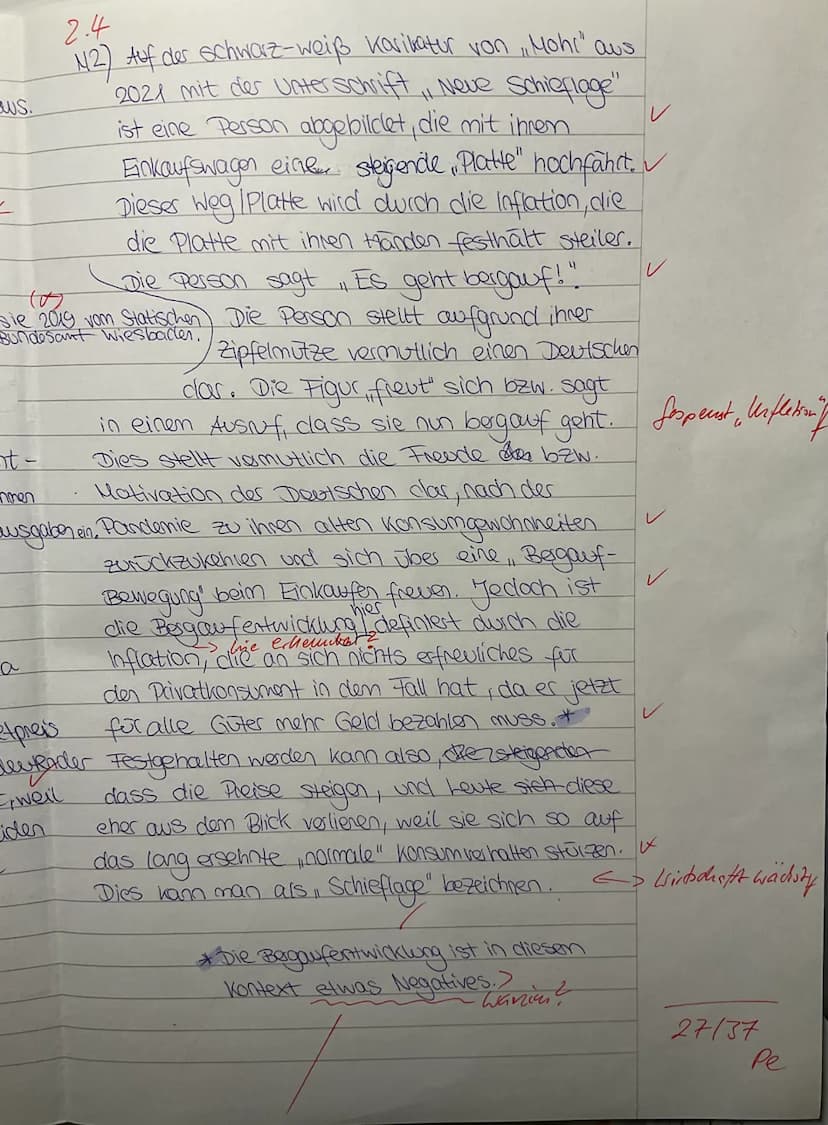 2.4
M2) Auf der schwarz-weiß Karikatur von „Mohr" aus
2021 mit der Unterschrift „Neue Schieflage"
aus.
ist eine Person abgebildet, die mit ihrem
Einkaufswagen eine steigende „Platte" hochfährt.
Dieser Weg/Platte wird durch die Inflation, die
die Platte mit ihren Händen festhält steiler.
Die Person sagt „Es geht bergauf!".
sie 2019 vom Statischen
Bundesamt Wiesbaden.
Die Person stellt aufgrund ihrer
Zipfelmütze vermutlich einen Deutschen
dar. Die Figur „freut" sich bzw. sagt
in einem Ausruf, dass sie nun bergauf geht.
Gespenst „Inflation"
Dies stellt vermutlich die Freude bzw.
Motivation des Deutschen dar, nach der
ausgaben ein.
Pandemie zu ihren alten Konsumgewohnheiten
zurückzukehren und sich über eine „Bergauf-
Bewegung" beim Einkaufen freuen. Jedoch ist
die Bergaufentwicklung hier definiert durch die
→ wie erkennbar?
Inflation, die an sich nichts erfreuliches für
den Privatkonsument in dem Fall hat, da er jetzt
für alle Güter mehr Geld bezahlen muss.*
Festgehalten werden kann also, die steigenden
dass die Preise steigen, und Leute sich diese
eher aus dem Blick verlieren, weil sie sich so auf
das lang ersehnte „normale" Konsumverhalten stürzen.
Dies kann man als „Schieflage" bezeichnen.
↔ Wirtschaft wächst
*Die Bergaufentwicklung ist in diesen
Kontext etwas Negatives.
Warum?
27/37
Pe